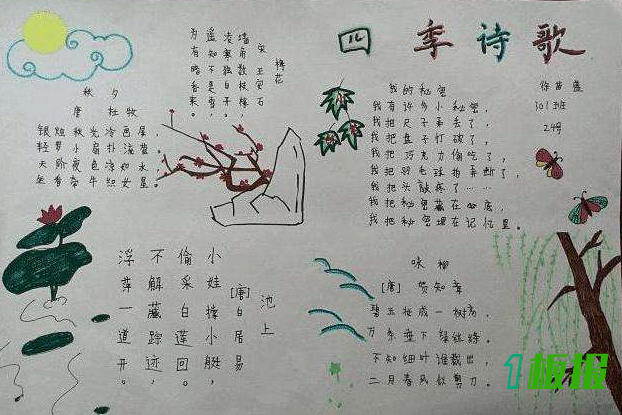 四季诗歌
301班
24号
秋夕
唐 杜牧
银烛秋光冷画屏，
轻罗小扇扑流萤。
天阶夜色凉如水，
坐看牵牛织女星。
梅花
宋 王安石
墙角数枝梅，
凌寒独自开。
遥知不是雪，
为有暗香来。
我的秘密
我有许多小秘密，
我把尺子弄丢了，
我把盘子打破了，
我把巧克力偷吃了，
我把羽毛球拍弄断了，
我把头敲疼了…
我把秘密藏在心底，
我把秘密埋在记忆里。
池上
[唐]白居易
小娃撑小艇，
偷采白莲回。
不解藏踪迹，
浮萍一道开。
咏柳
[唐] 贺知章
碧玉妆成一树高，
万条垂下绿丝绦。
不知细叶谁裁出，
二月春风似剪刀。
1板报